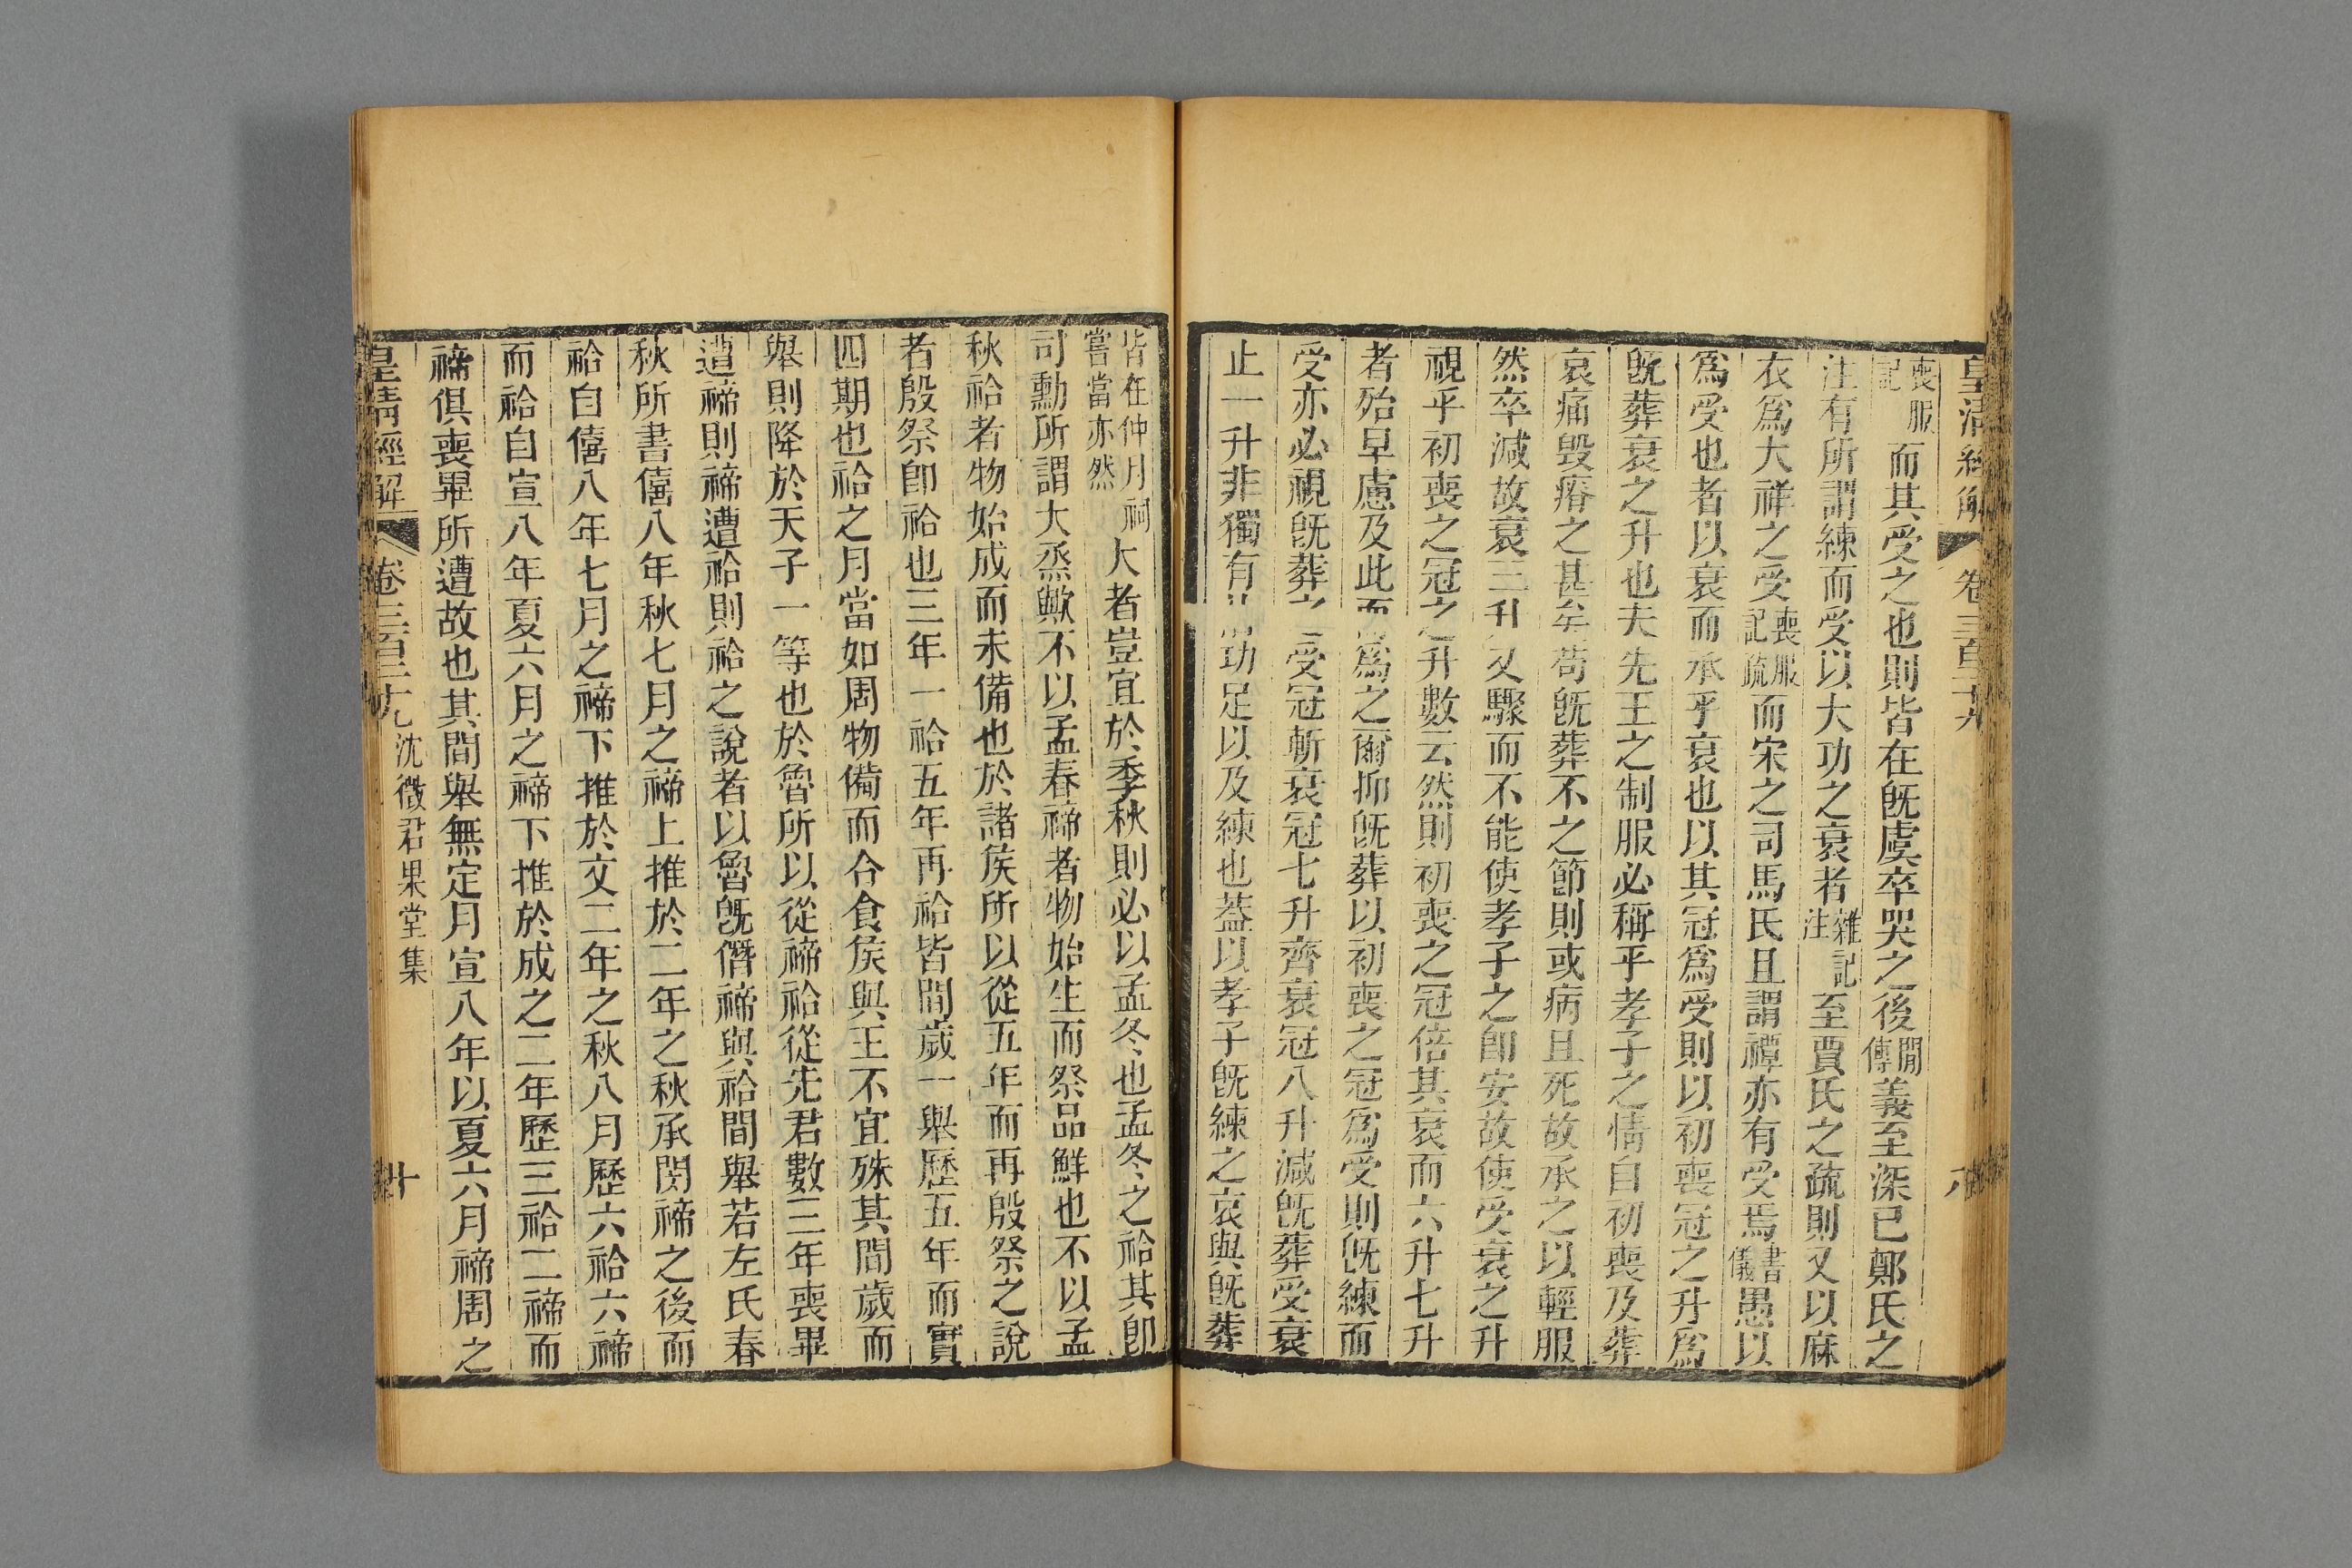 皇清經解 卷三百二十九 八
喪服記而其受之也則皆在旣虞卒哭之後閒傳義至深已鄭氏之
注有所謂練而受以大功之衰者雜記注至賈氏之疏則又以麻
衣爲大祥之受喪服記疏而宋之司馬氏且謂禫亦有受焉書儀愚以
爲受也者以衰而承乎衰也以其冠爲受則以初喪冠之升爲
旣葬衰之升也夫先王之制服必稱乎孝子之情自初喪及葬
哀痛毀瘠之甚矣苟旣葬不之節則或病且死故承之以輕服
然卒減故衰三升又驟而不能使孝子之卽安故使受衰之升
視乎初喪之冠之升數云然則初喪之冠倍其衰而六升七升
者殆早慮及此而爲之爾抑旣葬以初喪之冠爲受則旣練而
受亦必視旣葬之受冠斬衰冠七升齊衰冠八升減旣葬受衰
止一升非獨有功足以及練也蓋以孝子旣練之哀與旣葬
皆在仲月祠嘗當亦然大者豈宜於季秋則必以孟冬也孟冬之祫其卽
司勳所謂大烝歟不以孟春禘者物始生而祭品鮮也不以孟
秋祫者物始成而未備也於諸侯所以從五年而再殷祭之說
者殷祭卽祫也三年一祫五年再祫皆間歲一舉歷五年而實
四期也祫之月當如周物備而合食侯與王不宜殊其間歲而
舉則降於天子一等也於魯所以從禘祫從先君數三年喪畢
遭禘則禘遭祫則祫之說者以魯旣僭禘與祫間舉若左氏春
秋所書僖八年秋七月之禘上推於二年之秋承閔禘之後而
祫自僖八年七月之禘下推於文二年之秋八月歷六祫六禘
而祫自宣八年夏六月之禘下推於成之二年歷三祫二禘而
禘俱喪畢所遭故也其間舉無定月宣八年以夏六月禘周之
皇清經解 卷三百二十九 沈徵君果堂集 十